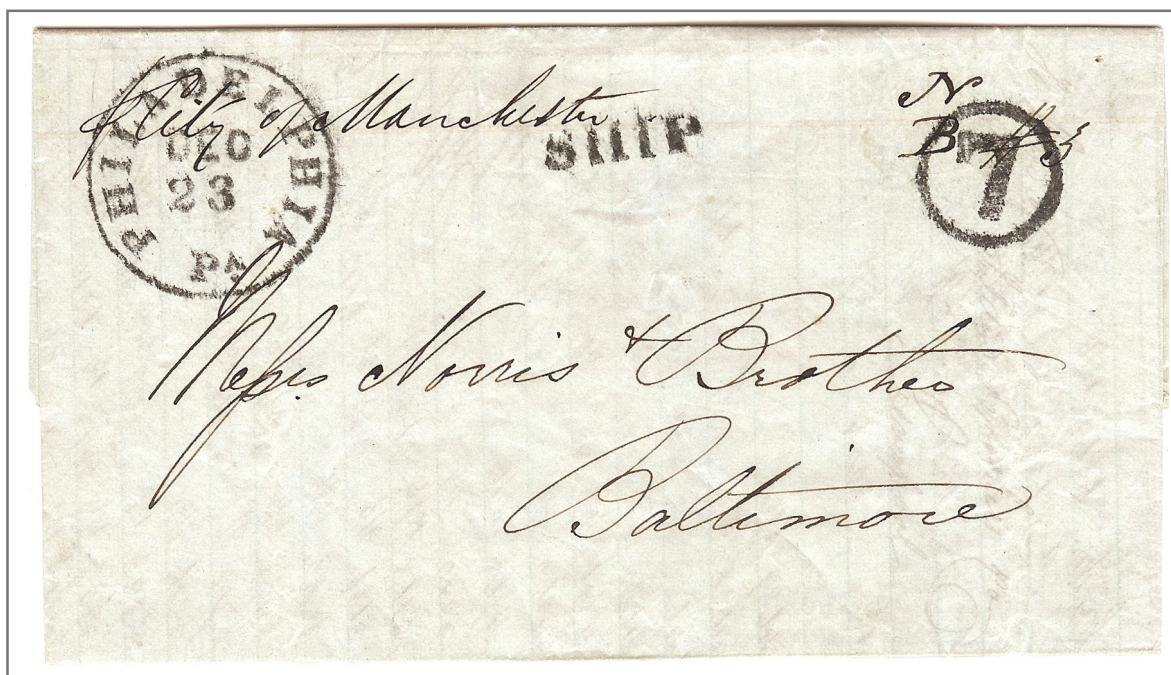 PHILADELPHIA
DEC
23
PA
City of Manchester
SHIP
N
B #3
7
Messrs. Norris & Brother
Baltimore